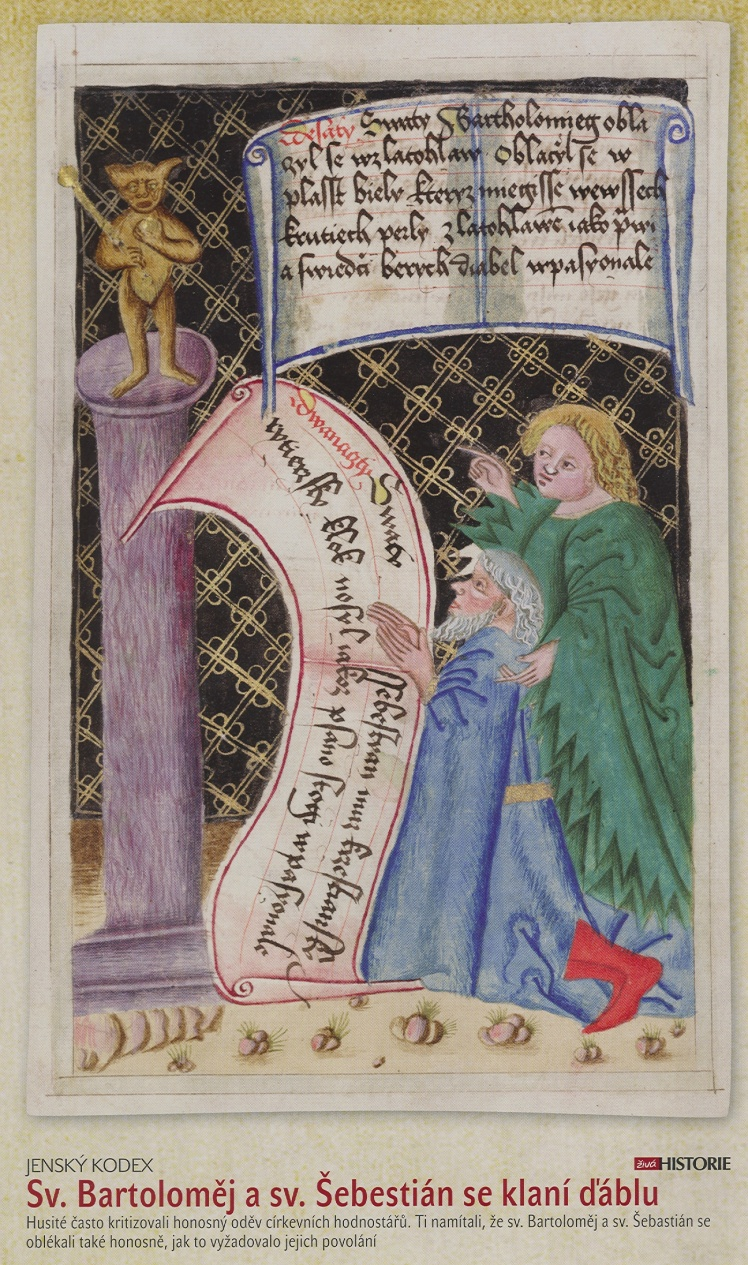 Desaty Swaty Bartholomieg obla
zyl se wzlatohlaw Oblaczyl se w
plasst biely kteryz miegsse wewssech
krutiech perly zlatohlawe iako prwi
a swiedči berych diabel wpasyonale
dwanaczty Swaty
Ssebestian muz krzestiansky
rytiersky klok nosyl
wpasyonale
JENSKÝ KODEX
živá HISTORIE
Sv. Bartoloměj a sv. Šebestián se klaní ďáblu
Husité často kritizovali honosný oděv církevních hodnostářů. Ti namítali, že sv. Bartoloměj a sv. Šebastián se
oblékali také honosně, jak to vyžadovalo jejich povolání